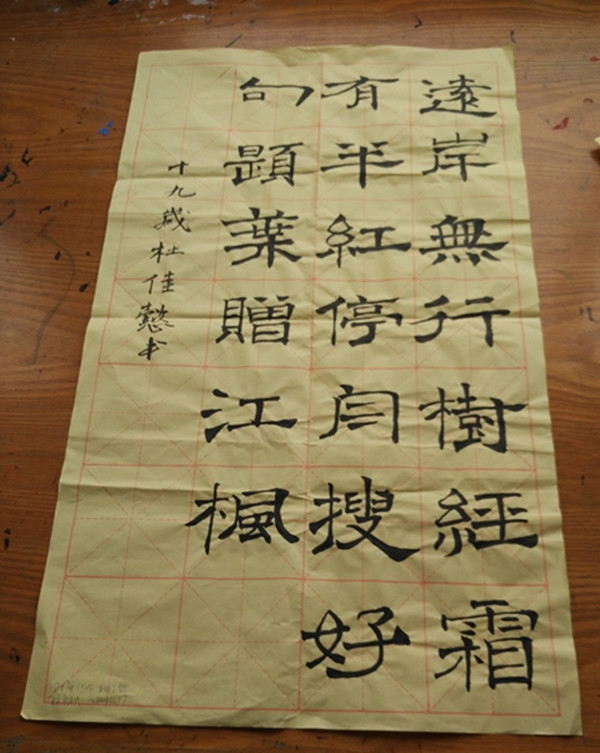 遠岸無行樹經霜
有半紅停舟搜好
句題葉贈江楓
十九歲杜佳懿书